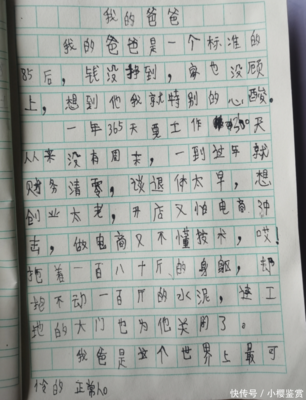 我的爸爸
我的爸爸是一个标准的
85后，钱没挣到，家也没顾
上，想到他我就特别的心酸。
一年365天要工作380天
从来没有周末，一到过年就
财务清零，谈退休太早，想
创业太老，开店又怕电商冲
击，做电商又不懂技术，哎！
拖着一百八十斤的身躯，却
抱不动一百斤的水泥，连工
地的大门也为他关闭了。
我爸是这个世界上最可
怜的正常人。
快传号/小樱鉴赏